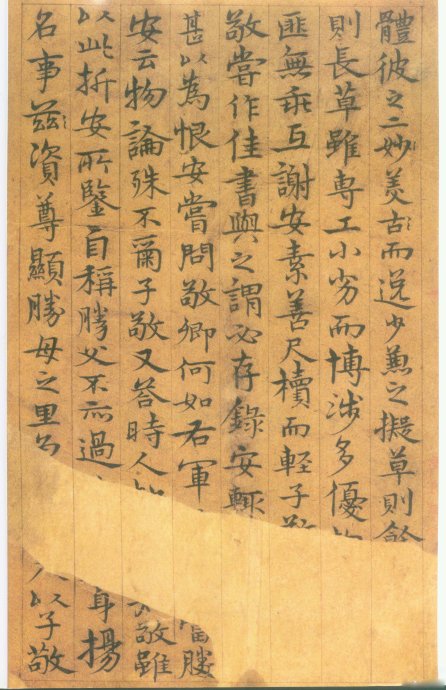 體彼之二妙羙古而逸少兼之擬草則餘
則長草雖専工小劣而博涉多優
匪無乖互謝安素善尺櫝而軽子敬
敬嘗作佳書與之謂必存錄安輒
甚以為恨安嘗問敬卿何如右軍當勝
安云物論殊不爾子敬又答時人敬雖
以此折安所鑒自稱勝父不亦過身揚
名事茲資尊顯勝母之里入以子敬